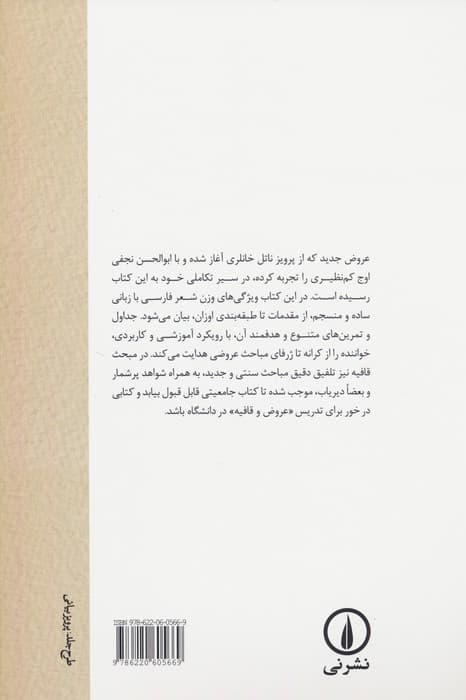 عروض جدید که از پرویز ناتل خانلری آغاز شده و با ابوالحسن نجفی
اوج کم‌نظیری را تجربه کرده، در سیر تکاملی خود به این کتاب
رسیده است. در این کتاب ویژگی‌های وزن شعر فارسی با زبانی
ساده و منسجم، از مقدمات تا طبقه‌بندی اوزان، بیان می‌شود. جداول
و تمرین‌های متنوع و هدفمند آن، با رویکرد آموزشی و کاربردی،
خواننده را از کرانه تا ژرفای مباحث عروضی هدایت می‌کند. در مبحث
قافیه نیز تلفیق دقیق مباحث سنتی و جدید، به همراه شواهد پرشمار
و بعضاً دیریاب، موجب شده تا کتاب جامعیتی قابل قبول بیابد و کتابی
در خور برای تدریس «عروض و قافیه» در دانشگاه باشد.
نشرنی
ISBN 978-622-06-0566-9
9 786220 605669
طرح جلد: پرویز بیانی